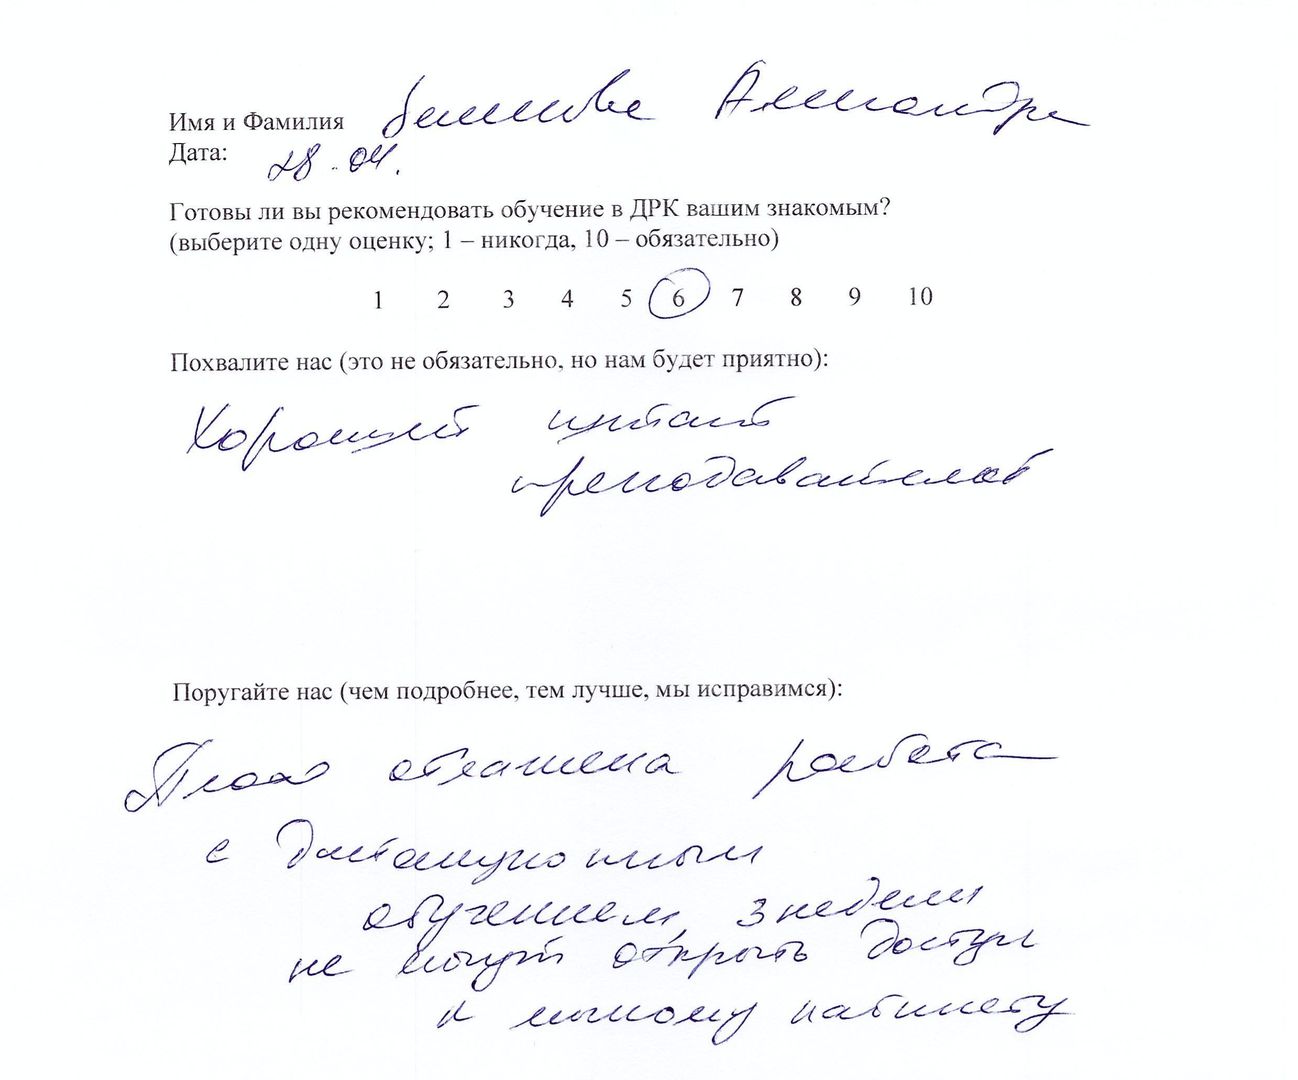 Имя и Фамилия Александра
Дата: 28.04.
Готовы ли вы рекомендовать обучение в ДРК вашим знакомым?
(выберите одну оценку; 1 – никогда, 10 – обязательно)
1 2 3 4 5 6 7 8 9 10
Похвалите нас (это не обязательно, но нам будет приятно):
Хороший штат
преподавателей
Поругайте нас (чем подробнее, тем лучше, мы исправимся):
Плохо отлажена работа
с дистанционным
обучением, 3 недели
не могут открыть доступ
к личному кабинету